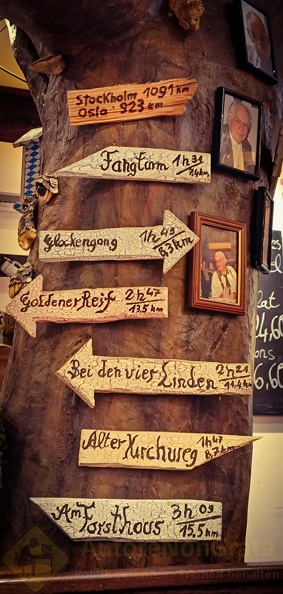 Stockholm 1091 km
Oslo 923 km
Fangturm 1h31
7,4km
Glockengang 1h49
8,3km
Goldener Reif 2h47
13,5 km
Bei den vier Linden 2h21
11,4km
Alter Kirchweg 1h47
8,7km
Am Forsthaus 3h09
15,5km